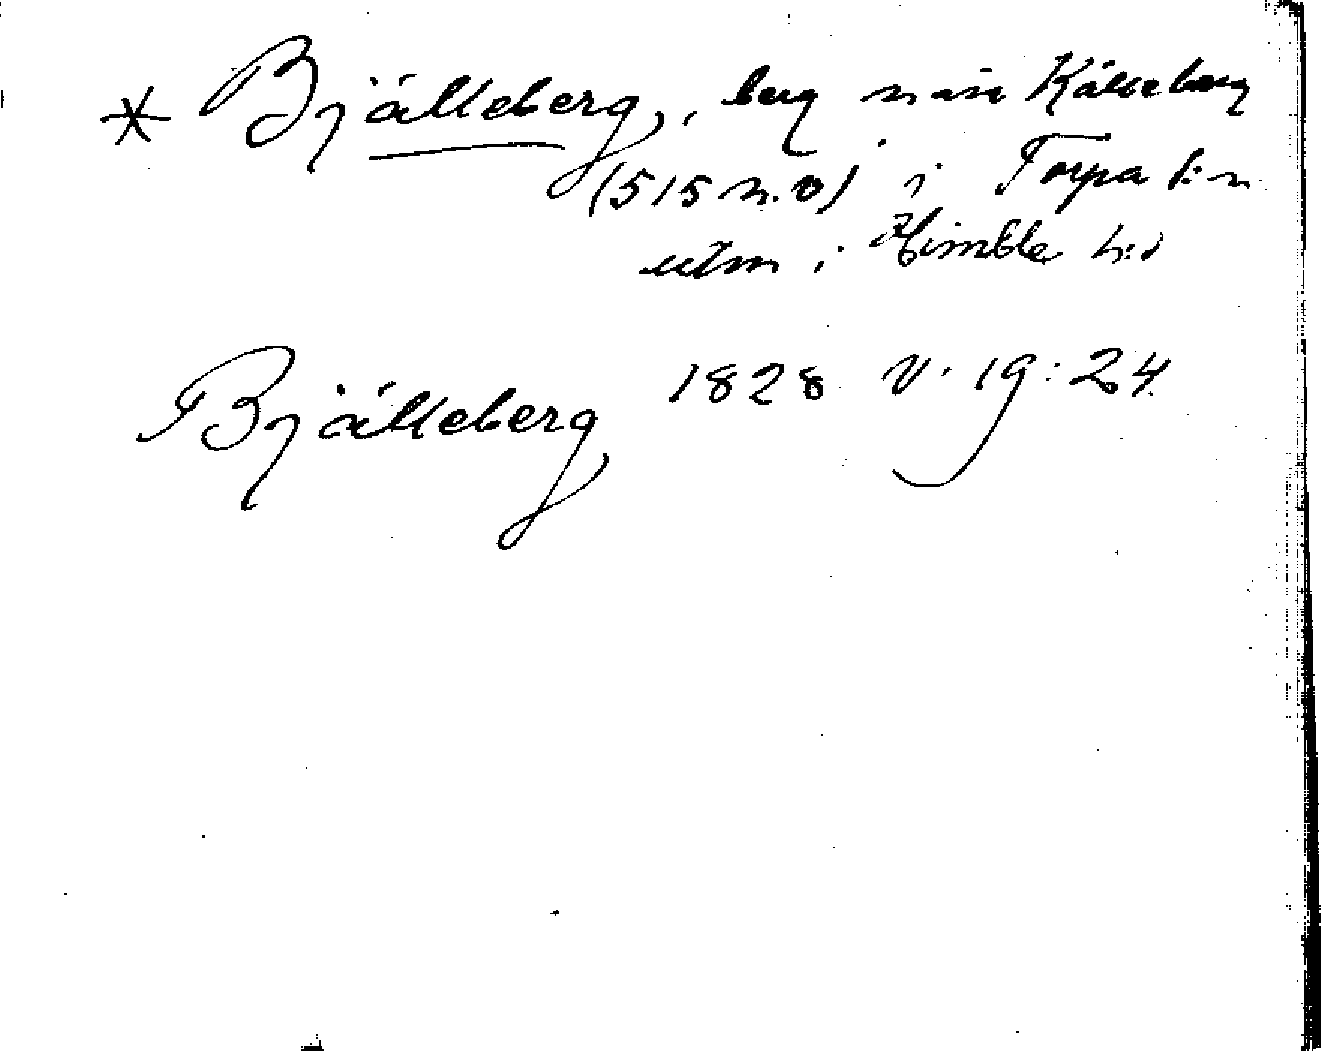 * Bjälleberg, berg nära Källeberg
(515 n.v) i Torpa s:n
utm i Himble h:d
Bjälleberg 1828 V. 19:24.